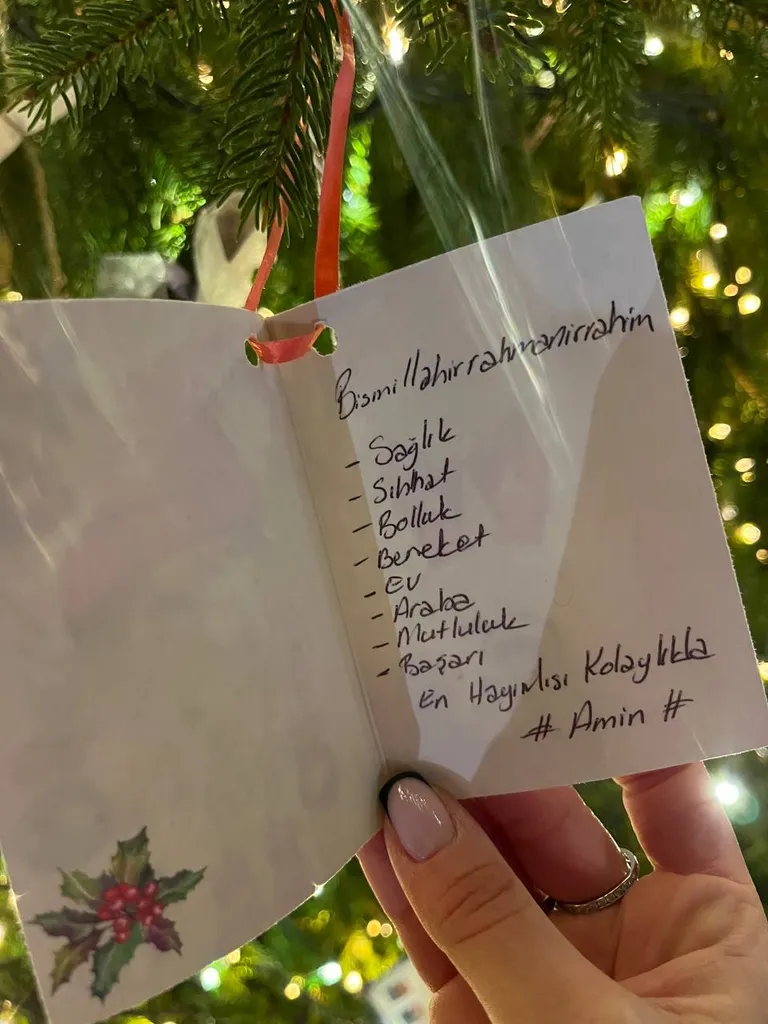 Bismillahirrahmanirrahim
- Sağlık
- Sıhhat
- Bolluk
- Bereket
- Ev
- Araba
- Mutluluk
- Başarı
En Hayırlısı Kolaylıkla
# Amin #